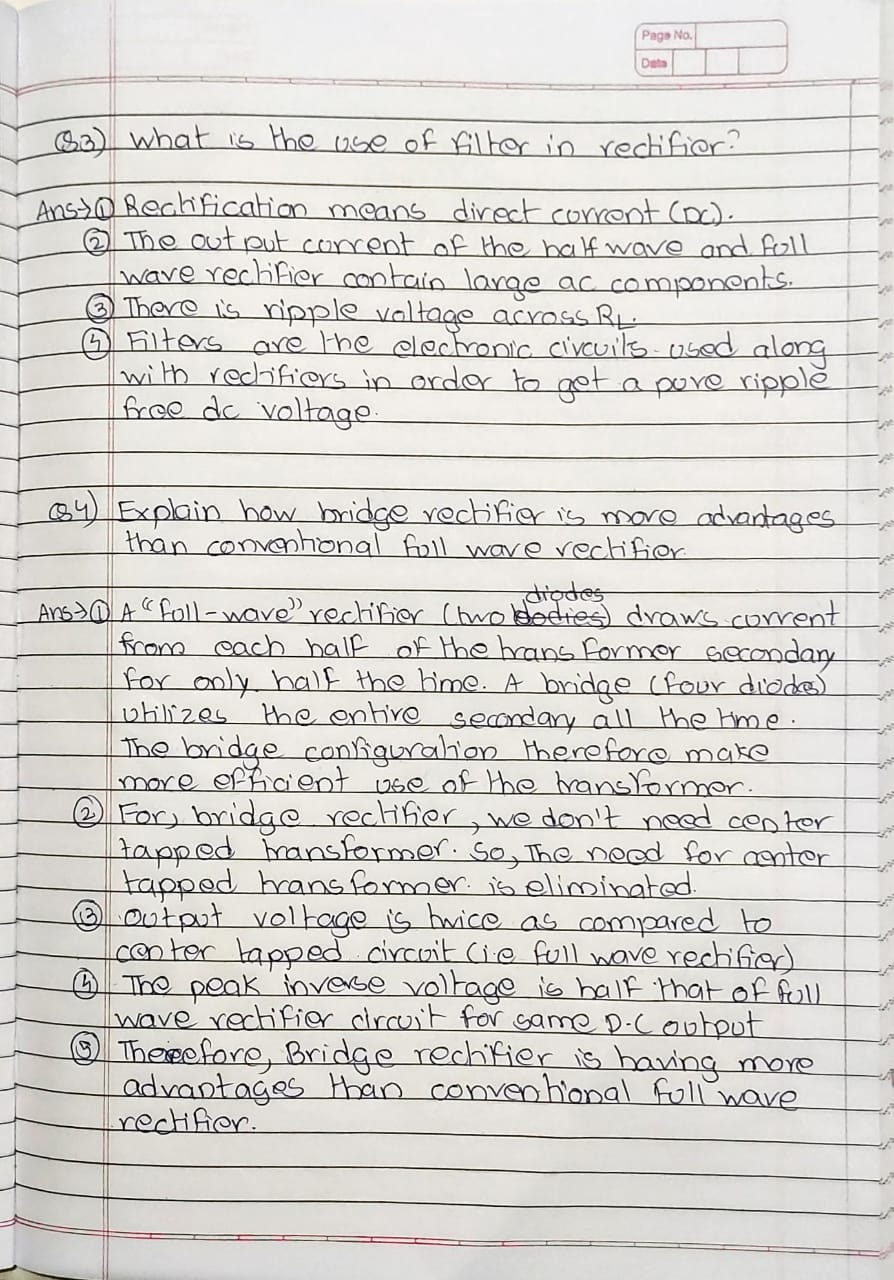 Page No.
Date
Q3) What is the use of filter in rectifier?
Ans→① Rectification means direct current (DC).
② The output current of the half wave and full
wave rectifier contain large ac components.
③ There is ripple voltage across RL.
④ Filters are the electronic circuits used along
with rectifiers in order to get a pure ripple
free dc voltage.
Q4) Explain how bridge rectifier is more advantages
than conventional full wave rectifier.
diodes
Ans→① A "full-wave" rectifier (two bodies) draws current
from each half of the transformer secondary
for only half the time. A bridge (four diodes)
utilizes the entire secondary all the time.
The bridge configuration therefore make
more efficient use of the transformer.
② For, bridge rectifier, we don't need center
tapped transformer. So, The need for center
tapped transformer is eliminated.
③ Output voltage is twice as compared to
center tapped circuit (i.e full wave rectifier)
④ The peak inverse voltage is half that of full
wave rectifier circuit for same D.C output
⑤ Thereefore, Bridge rectifier is having more
advantages than conventional full wave
rectifier.